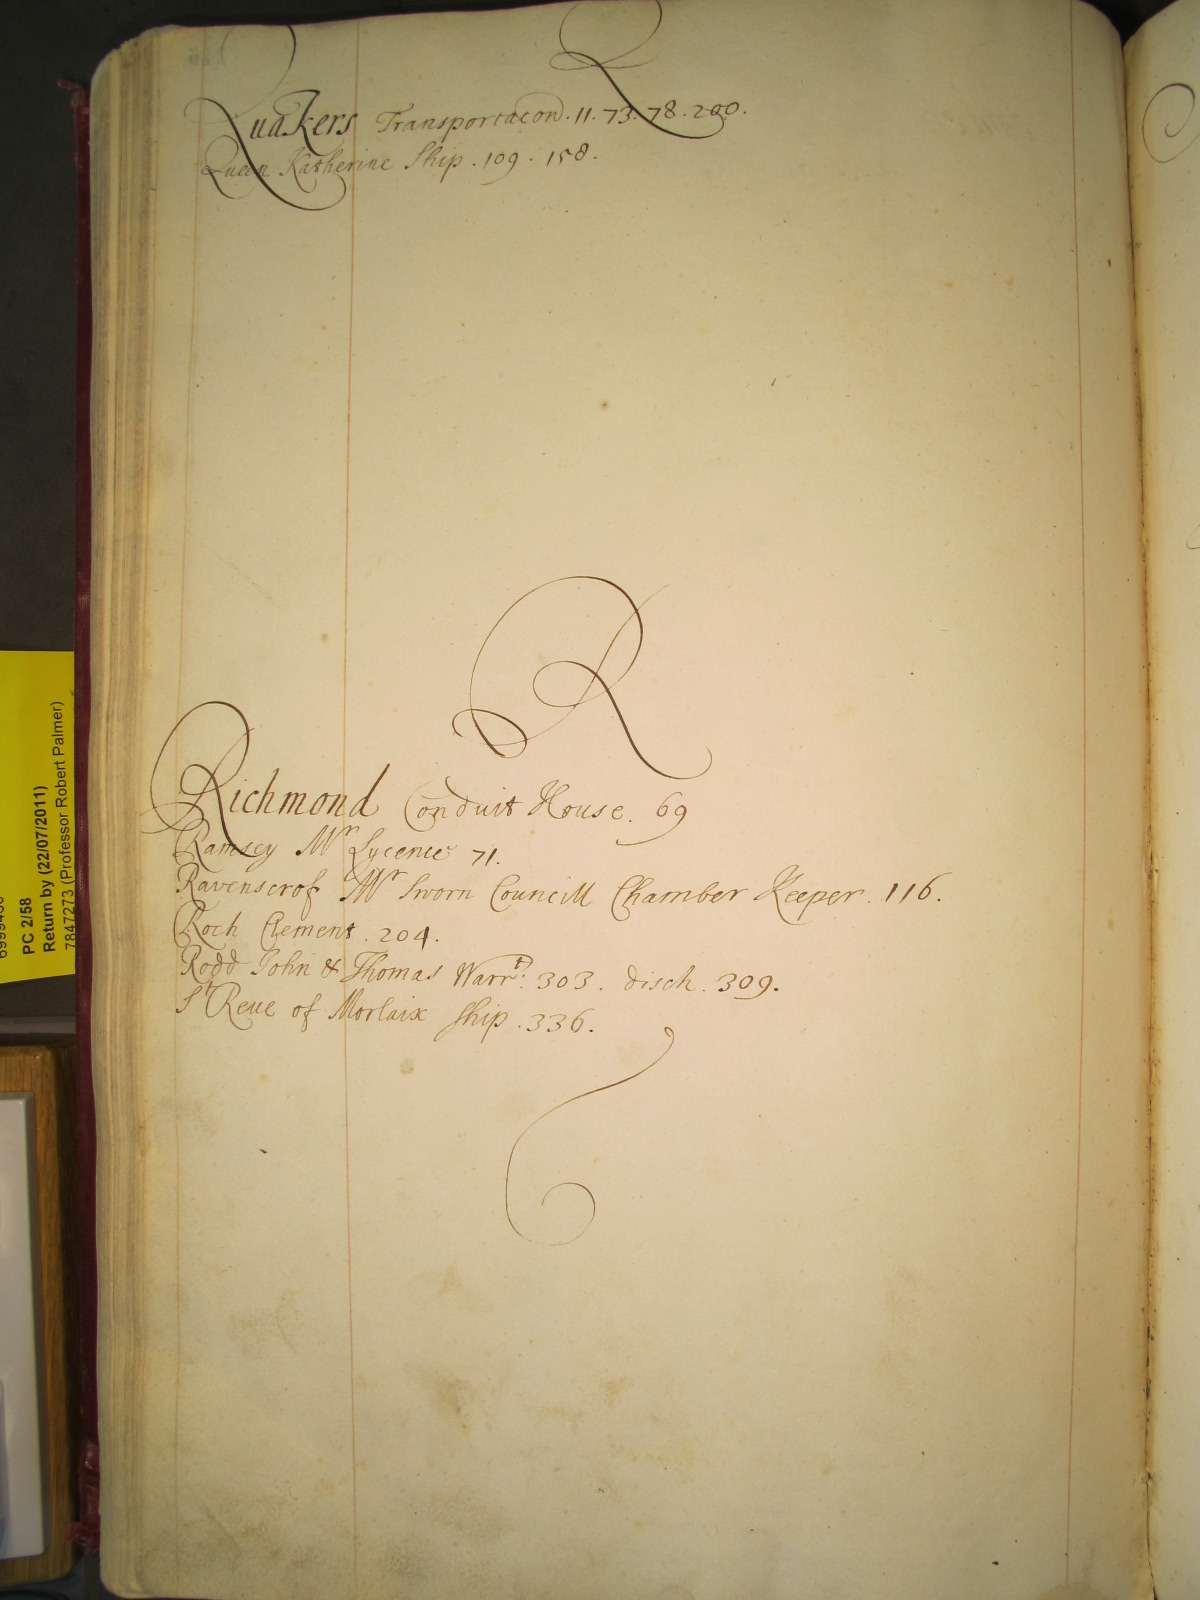 Q
Quakers Transportacon. 11. 73. 78. 200.
Queen Katherine Ship. 109. 158.
R
Richmond Conduit House. 69
Ramsey Mr Lycence 71.
Ravenscrof Mr Sworn Councill Chamber Keeper. 116.
Roch Clement. 204.
Rodd John & Thomas Warrt: 303. disch. 309.
St Reue of Morlaix Ship. 336.
PC 2/58
Return by (22/07/2011)
7847273 (Professor Robert Palmer)